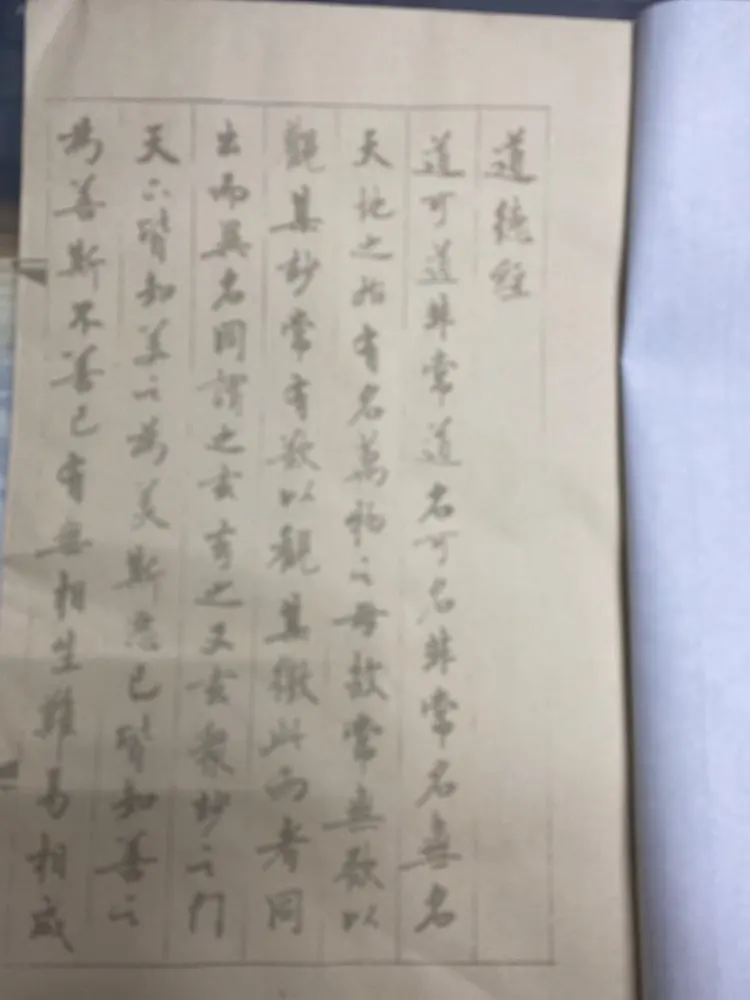 道德經
道可道非常道名可名非常名無名
天地之始有名萬物之母故常無欲以
觀其妙常有欲以觀其徼此兩者同
出而異名同謂之玄玄之又玄衆妙之門
天下皆知美之為美斯惡已皆知善之
為善斯不善已有無相生難易相成